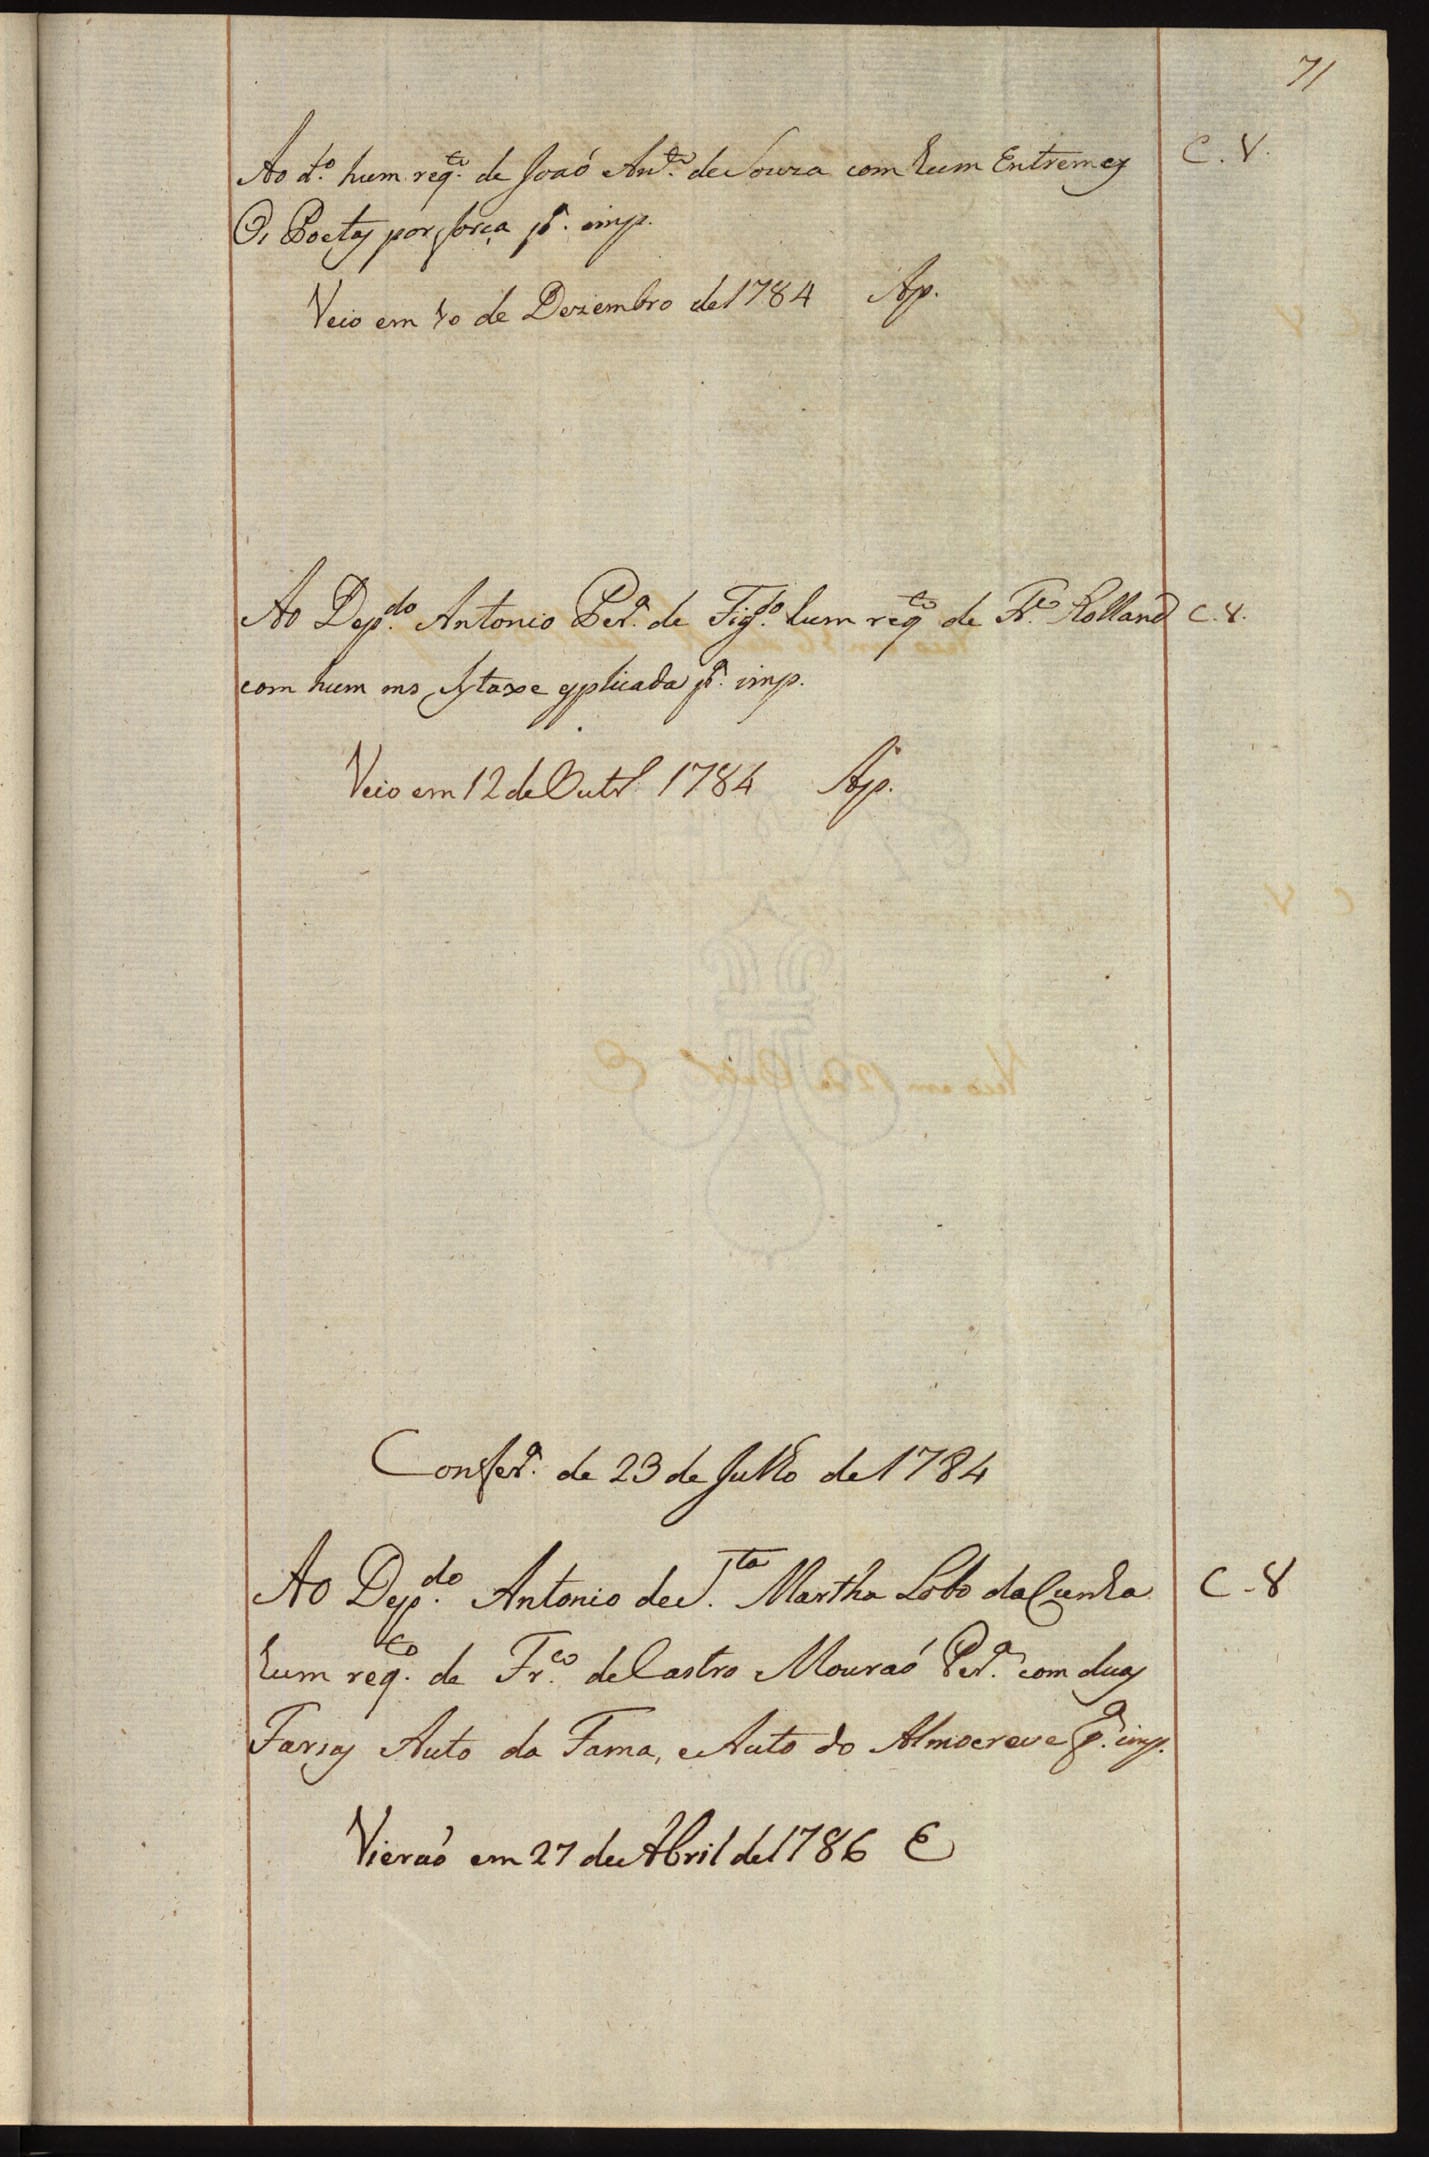 71
Ao d.º hum req.to de Joaõ Ant.º de Souza com hum Entremes C. 8.
Os Poetas por força p.ª imp.
Veio em 10 de Dezembro de 1784 Ap.
Ao Dep.do Antonio Per.ª de Fig.do hum req.to de Fr.co Rolland C. 8.
com hum ms Sytaxe explicada p.ª imp.
Veio em 12 de Outr.º 1784 Ap.
Confer.ª de 23 de Julho de 1784
Ao Dep.do Antonio de S.ta Martha Lobo da Cunha C. 8
hum req.to de Fr.co de Castro Mouraõ Per.ª com duas
Farsas Auto da Fama, e Auto do Almocreve p.ª imp.
Vieraõ em 27 de Abril de 1786 E